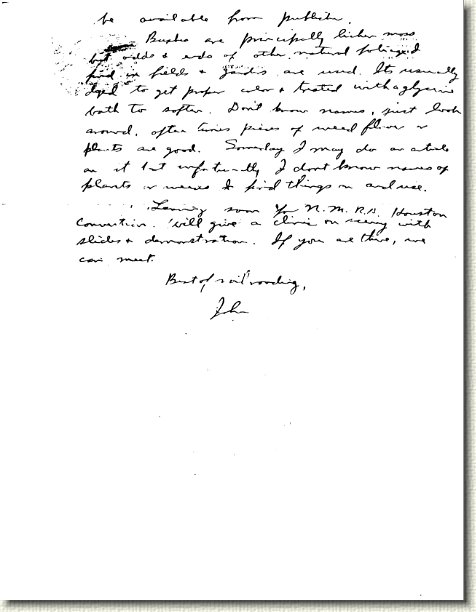 be available from publisher.
Bushes are principally lichen moss
but odds & ends of other natural foliage
found in fields & yards are used. Its usually
dyed to get proper color & treated with a glycerine
bath to soften. Don't know names, just look
around, often times pieces of weed flower or
plants are good. Someday I may do an article
on it but unfortunately I don't know names of
plants or weeds I find things on and use.
Leaving soon for N.M.R.A. Houston
Convention. will give a clinic on scenery with
slides & demonstration. If you are there, we
can meet.
Best of railroading,
John